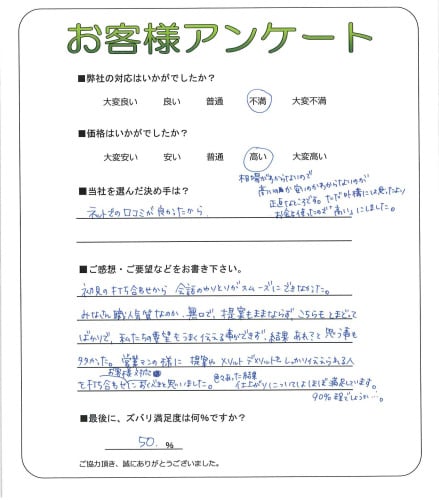 お客様アンケート
■弊社の対応はいかがでしたか？
大変良い　良い　普通　不満　大変不満
■価格はいかがでしたか？
大変安い　安い　普通　高い　大変高い
相場が分からないので
高いのか安いのかわからないのが
正直なところです。ただ外構には思ったより
お金を使ったので「高い」にしました。
■当社を選んだ決め手は？
ネットでの口コミが良かったから
■ご感想・ご要望などをお書き下さい。
初見の打ち合わせから 会話のやりとりがスムーズにできなかった。
みなさん職人気質なのか、無口で、提案もままならず こちらもとまどって
ばかりで、私たちの要望もうまく伝える事ができず、結果 あれ？と思う事も
多かった。営業マンの様に 提案や メリットデメリットをしっかり伝えられる人
お客様対応
を打ち合わせにおくべきと思いました。色々あった結果
仕上がりについてはほぼ満足しています。
90%程でしょうか…。
■最後に、ズバリ満足度は何％ですか？
50. ％
ご協力頂き、誠にありがとうございました。